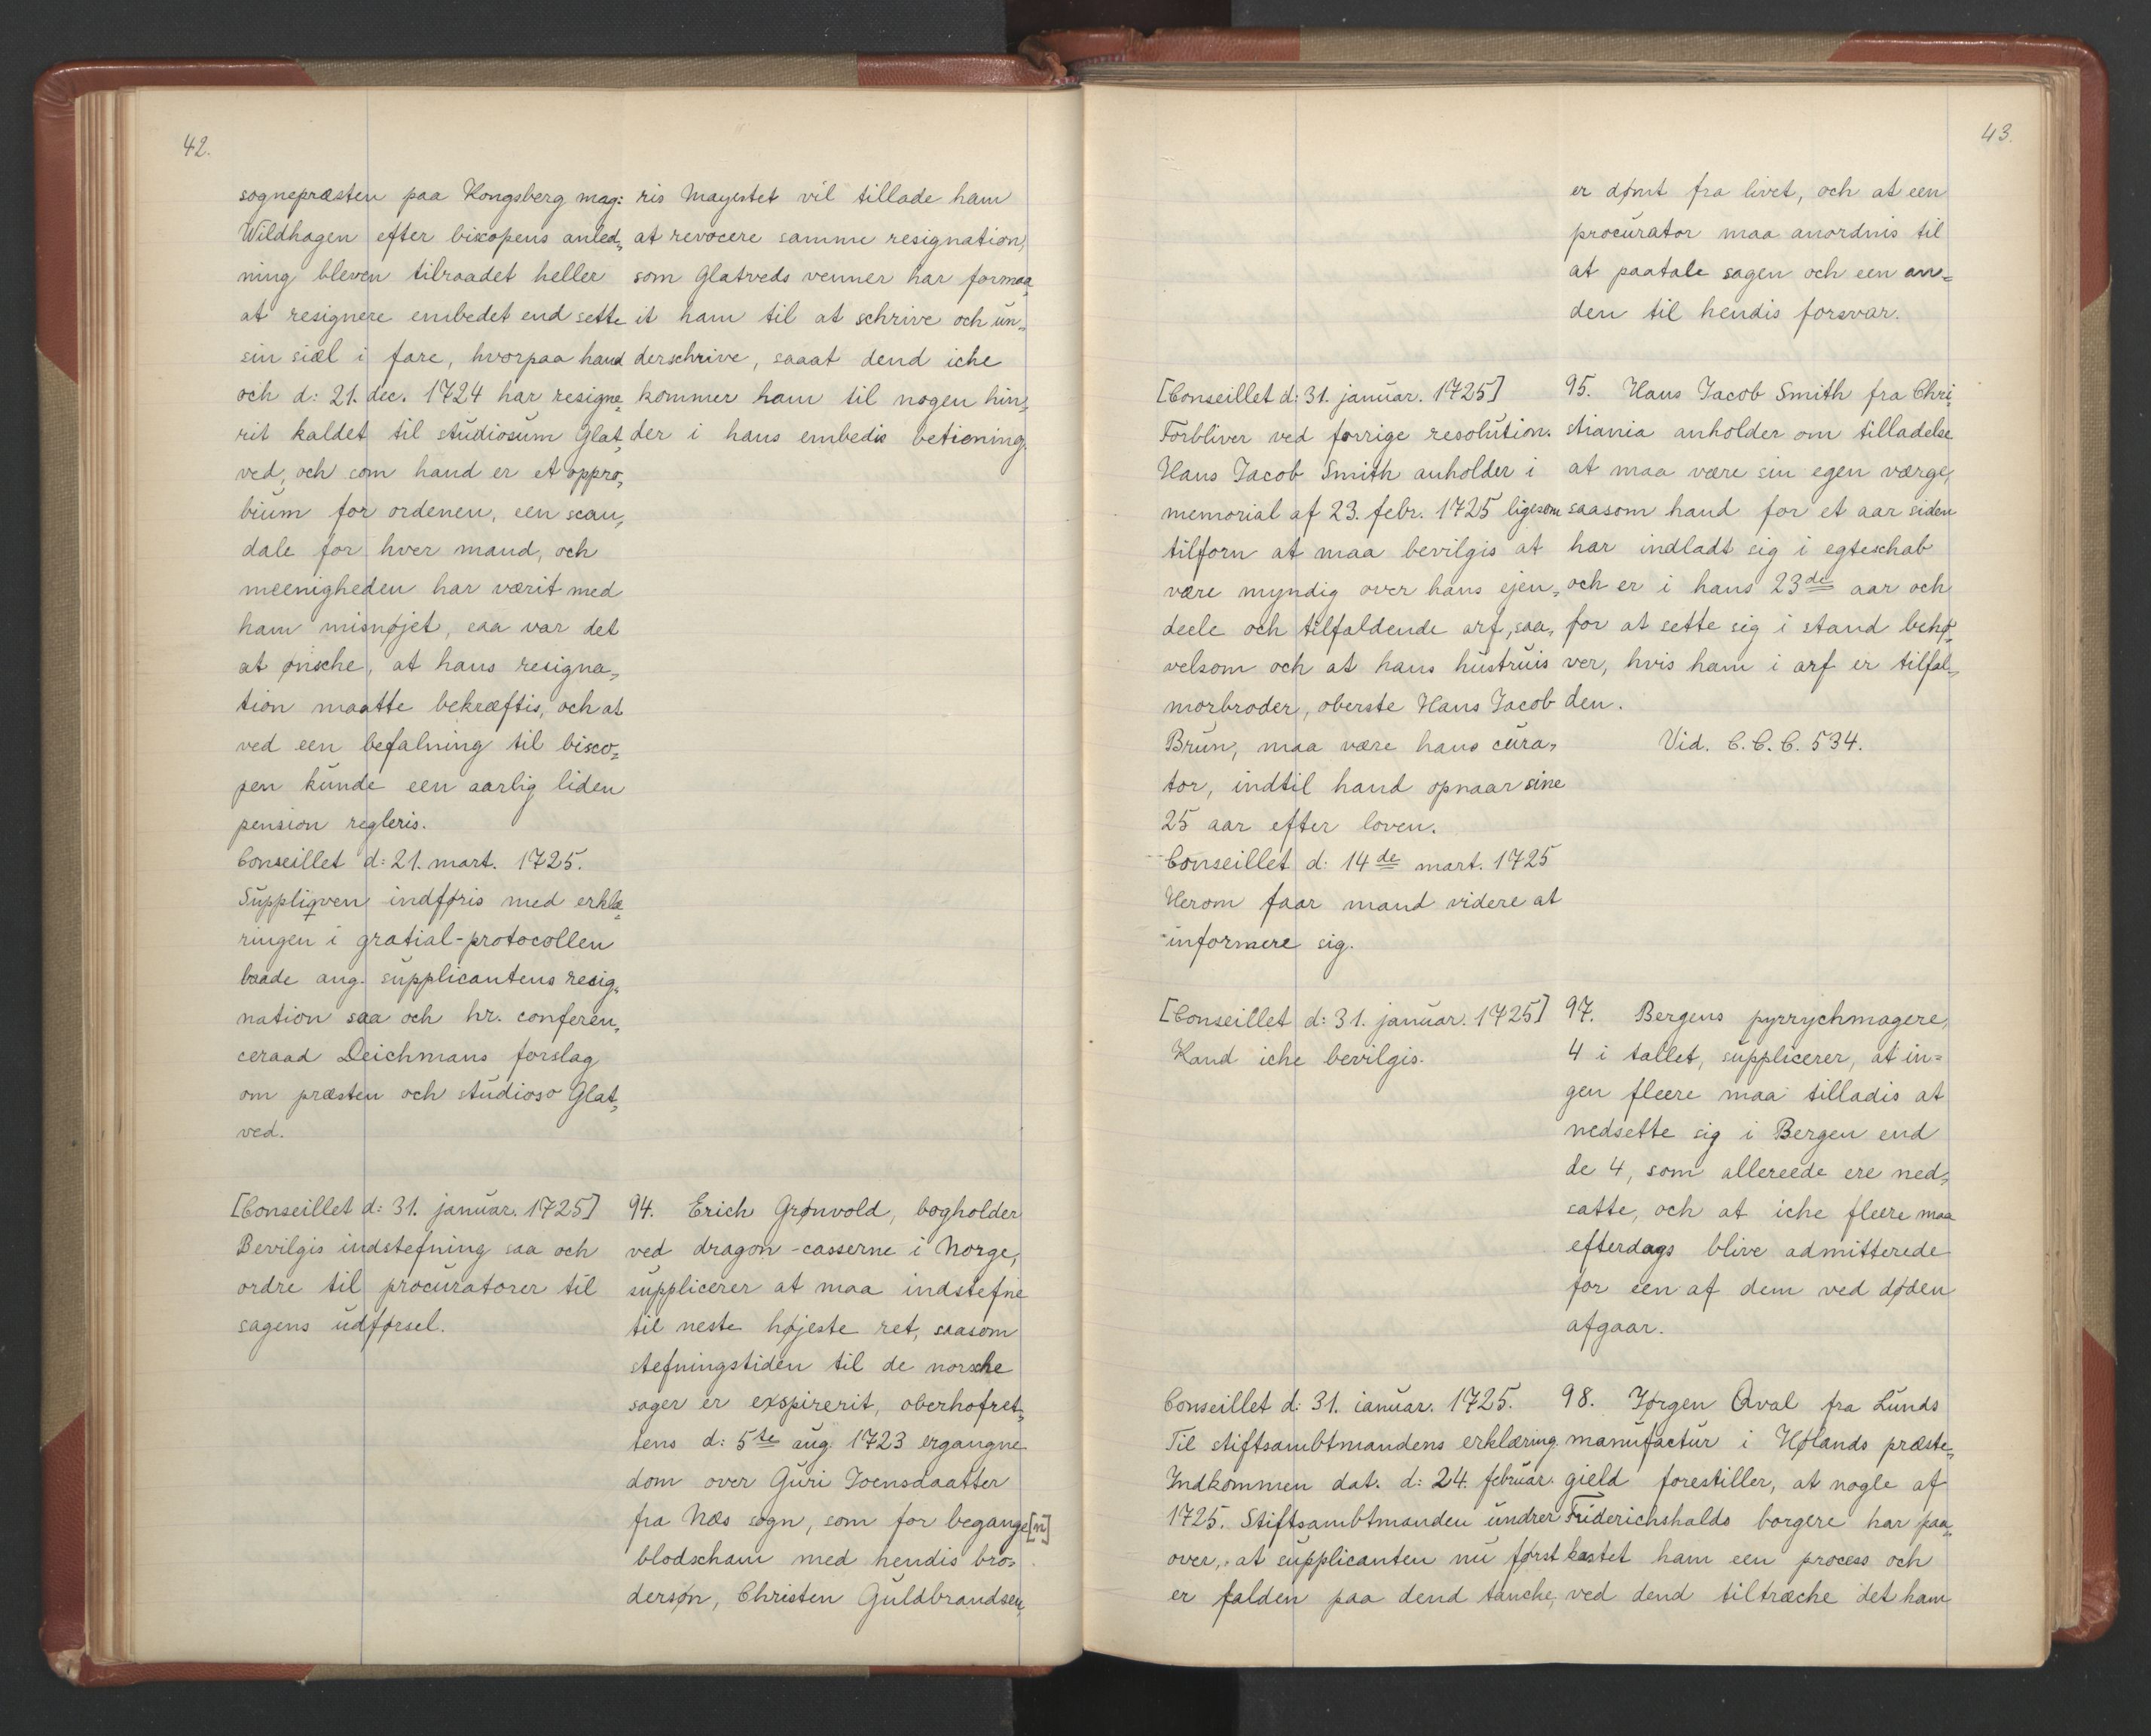 42.
sognepræsten paa Kongsberg mag:
Wildhagen efter biscopens anled„
ning bleven tilraadet heller
at resignere embedet end sette
sin siæl i fare, hvorpaa hand
och d: 21. dec. 1724 har resigne„
rit kaldet til studiosum Glat„
ved, och som hand er et oppro„
bium for ordenen, een scan„
dale for hver mand, och
meenigheden har værit med
ham misnøjet, saa var det
at ønsche, at hans resigna„
tion maatte bekræftis, och at
ved een befalning til bisco„
pen kunde een aarlig liden
pension regleris.
Conseillet d: 21. mart. 1725.
Suppliqven indføris med erklæ„
ringen i gratial-protocollen
baade ang. supplicantens resig„
nation saa och hr. conferen„
ceraad Deichmans forslag
om præsten och studioso Glat„
ved.
ris Mayestet vil tillade ham
at revocere samme resignation,
som Glatveds venner har formaa„
it ham til at schrive och un„
derschrive, saaat dend iche
kommer ham til nogen hin„
der i hans embedis betiening.
[Conseillet d: 31. januar. 1725]
Bevilgis indstefning saa och
ordre til procuratorer til
sagens udførsel.
94. Erich Grønvold, bogholder
ved dragon-casserne i Norge,
supplicerer at maa indstefne
til neste højeste ret, saasom
stefningstiden til de norsche
sager er exspirerit, oberhofret„
tens d: 5te aug. 1723 ergangne
dom over Guri Joensdaatter
fra Næs sogn, som for begange[n]
blodscham med hendis bro„
dersøn, Christen Guldbrandsen,
43.
er dømt fra livet, och at een
procurator maa anordnis til
at paatale sagen och een an„
den til hendis forsvar.
[Conseillet d: 31. januar. 1725]
Forbliver ved forrige resolution.
Hans Jacob Smith anholder i
memorial af 23. febr. 1725 ligesom
tilforn at maa bevilgis at
være myndig over hans ejen„
deele och tilfaldende arf, saa„
velsom och at hans hustruis
morbroder, oberste Hans Jacob
Brun, maa være hans cura„
tor, indtil hand opnaar sine
25 aar efter loven.
Conseillet d: 14de mart. 1725
Herom faar mand videre at
informere sig.
95. Hans Jacob Smith fra Chri„
stiania anholder om tilladelse
at maa være sin egen værge,
saasom hand for et aar siden
har indladt sig i egteschab
och er i hans 23de aar och
for at sette sig i stand behø„
ver, hvis ham i arf er tilfal„
den.
Vid. C. C. C. 534.
[Conseillet d: 31. januar. 1725]
Kand iche bevilgis.
97. Bergens pyrrychmagere,
4 i tallet, supplicerer, at in„
gen fleere maa tilladis at
nedsette sig i Bergen end
de 4, som allereede ere ned„
satte, och at iche fleere maa
efterdags blive admitterede
for een af dem ved døden
afgaar.
Conseillet d: 31. ianuar. 1725.
Til stiftsambtmandens erklæring.
Indkommen dat. d: 24. februar.
1725. Stiftsambtmanden undrer
over, at supplicanten nu først
er falden paa dend tanche,
98. Jørgen Qval fra Lunds
manufactur i Hølands præste„
gield forestiller, at nogle af
Friderichshalds borgere har paa„
kastet ham een process och
ved dend tiltræche det ham